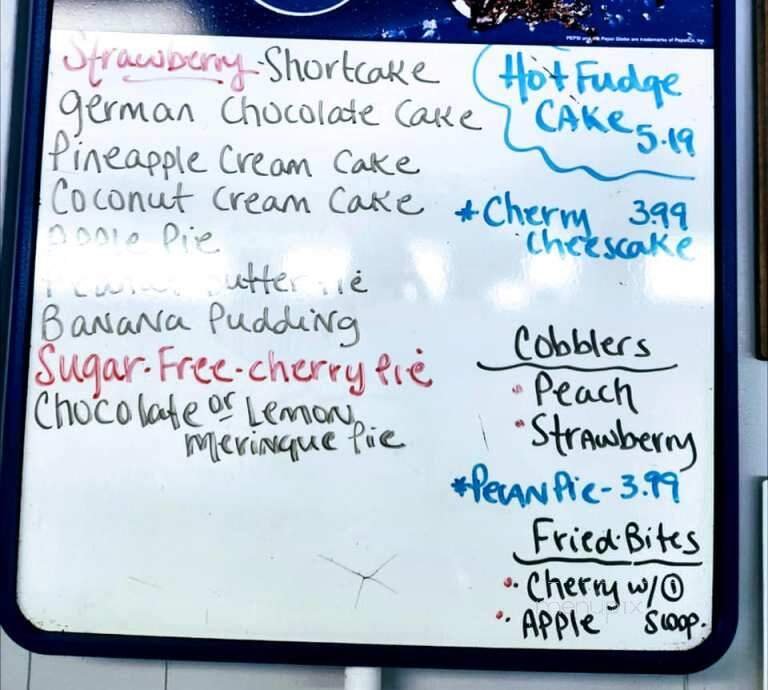 Strawberry-Shortcake
german Chocolate Cake
Pineapple Cream Cake
Coconut Cream Cake
Apple Pie
Peanut Butter Pie
Banana Pudding
Sugar-Free-cherry Pie
Chocolate or Lemon
Meringue Pie
Hot Fudge
CAKE 5.19
*Cherry 3.99
Cheescake
Cobblers
• Peach
• Strawberry
*Pecan Pie- 3.99
Fried-Bites
• Cherry w/①
• APPLE Scoop.
menupix